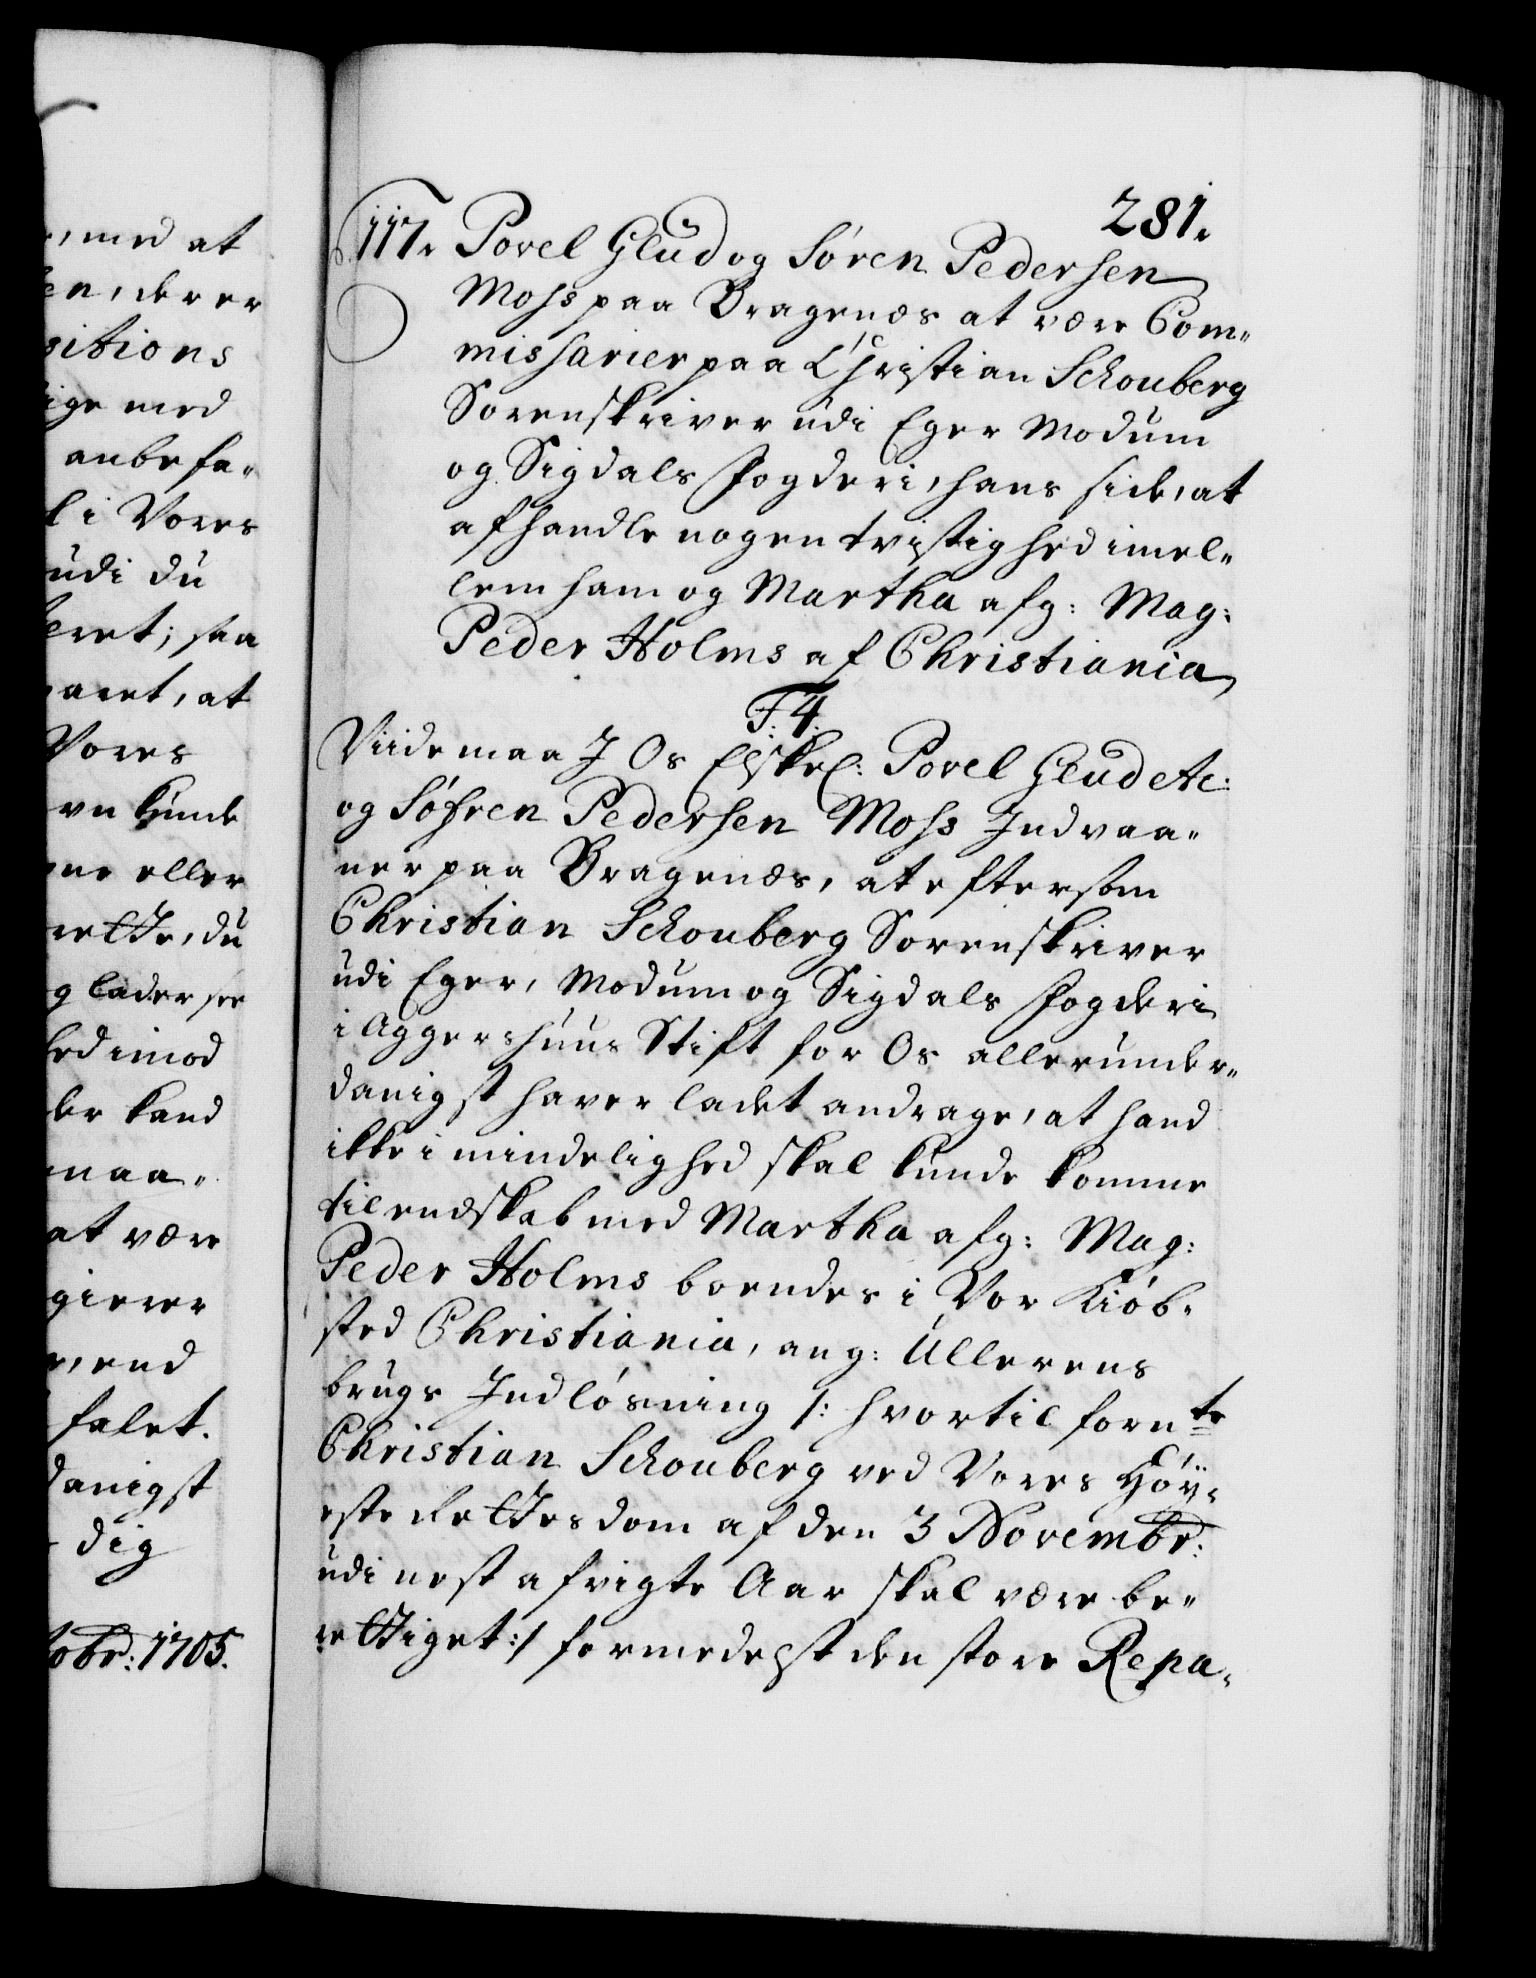 , med at
en, der er
sitions
ige med
anbefa„
l i Vores
udi du
eret; saa
aret, at
Vores
vn kunde
ne eller
rette, du
g lader see
hed imod
der kand
maa„
at være
gierer
r, end
falet.
danigst
dig
tobr: 1705.
281.
117. Povel Glud og Sören Pedersen
Moss paa Bragenæs at være Com„
missarier paa Christian Schouberg
Sorenskriver udi Eger Modum
og Sigdals Fogderi, hans side, at
afhandle nogen tvistighed imel„
lem ham og Martha afg: Mag:
Peder Holms af Christiania
F. 4.
Viide maa J Os Elskel: Povel Glud etc:
og Söfren Pedersen Moss Indvaa„
ner paa Bragenæs, at eftersom
Christian Schouberg Sorenskriver
udi Eger, Modum og Sigdals Fogderi
i Aggershuus Stift for Os allerunder„
danigst haver ladet andrage, at hand
ikke i mindelighed skal kunde komme
til endskab med Martha afg: Mag:
Peder Holms boendes i Vor Kiöb„
sted Christiania, ang: Ullerens
brugs Indlösning /: hvortil fornte
Christian Schouberg ved Vores Höy„
este Rettes dom af den 3 Novembr:
udi nest afvigte Aar skal være be„
rettiget :/ formedelst den store Repa„